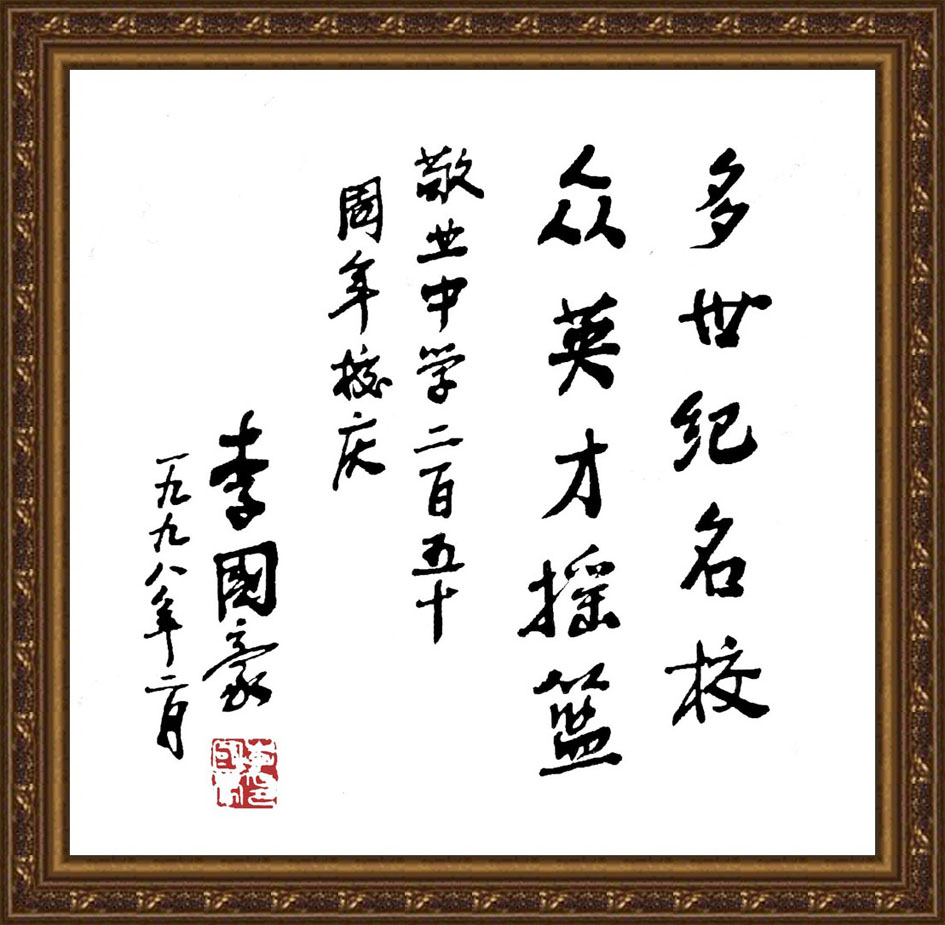 多世纪名校
众英才摇篮
敬业中学二百五十
周年校庆
李國豪
一九九八年二月